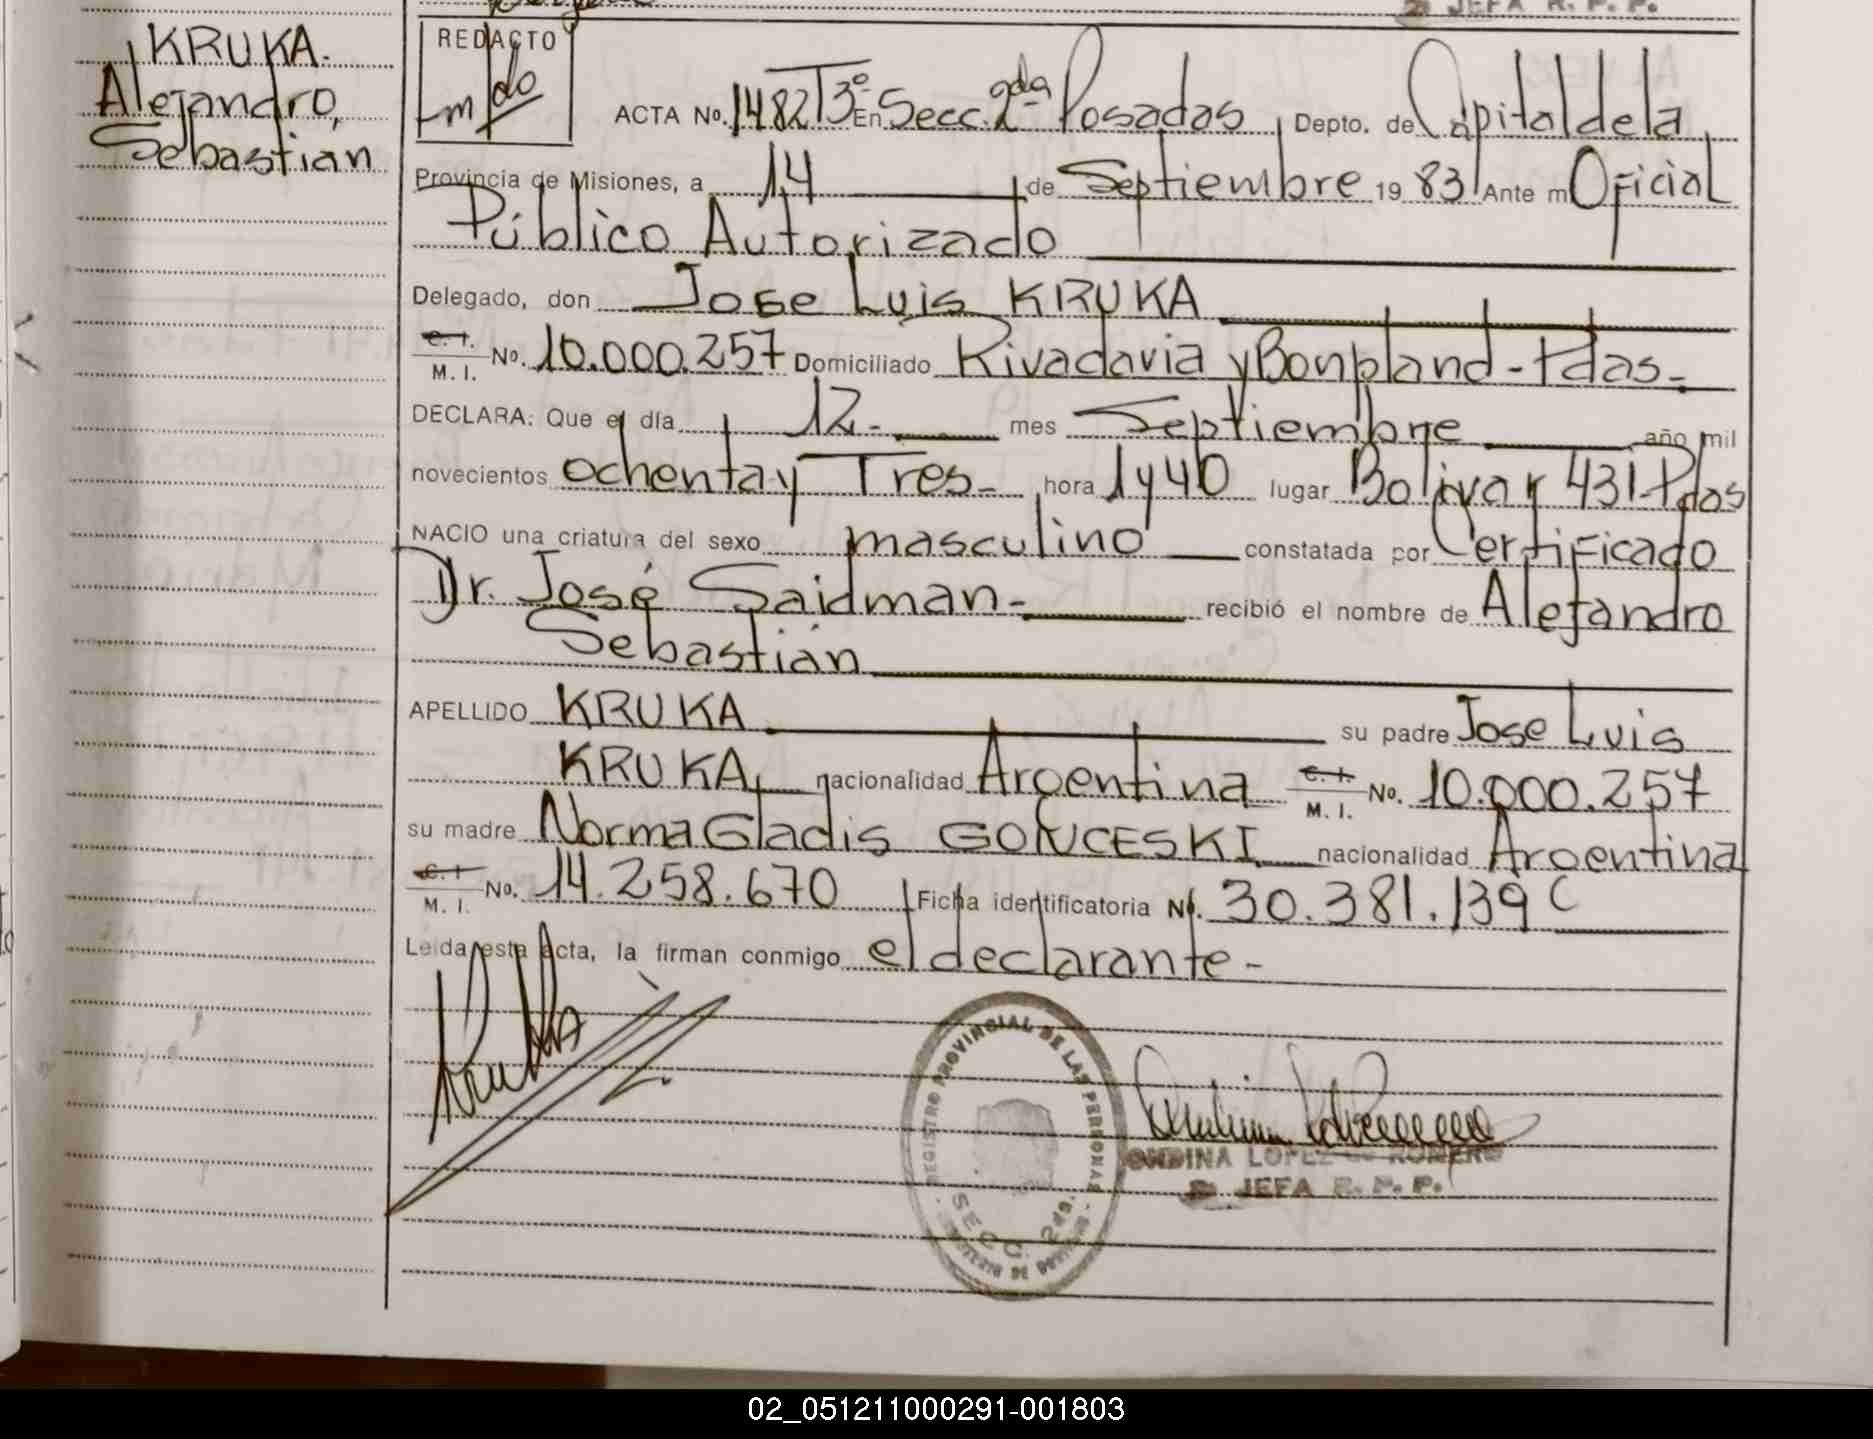 JEFA R. P. P.
KRUKA.
Alejandro,
Sebastian
REDACTO
ACTA No. 1482 T3º En Secc. 2da Posadas, Depto. de Capital de la
Provincia de Misiones, a 14 de Septiembre 1983 Ante mi Oficial
Público Autorizado
Delegado, don Jose Luis KRUKA
C. I.
M. I. No. 10.000.257 Domiciliado Rivadavia y Bonpland - Pdas -
DECLARA: Que el día 12 - mes Septiembre año mil
novecientos ochenta y Tres - hora 1 y 40 lugar Bolivar 431 - Pdas
NACIO una criatura del sexo masculino constatada por Certificado
Dr. José Saidman - recibió el nombre de Alejandro
Sebastián
APELLIDO KRUKA su padre Jose Luis
KRUKA, nacionalidad Argentina C. I. M. I. No. 10.000.257
su madre Norma Gladis GONCESKI nacionalidad Argentina
C. I.
M. I. No. 14.258.670 Ficha identificatoria Nº. 30.381.139 C
Leida esta acta, la firman conmigo el declarante -
REGISTRO PROVINCIAL DE LAS PERSONAS
SECC. 2da.
ONDINA LOPEZ de ROMERO
JEFA R. P. P.
02_051211000291-001803